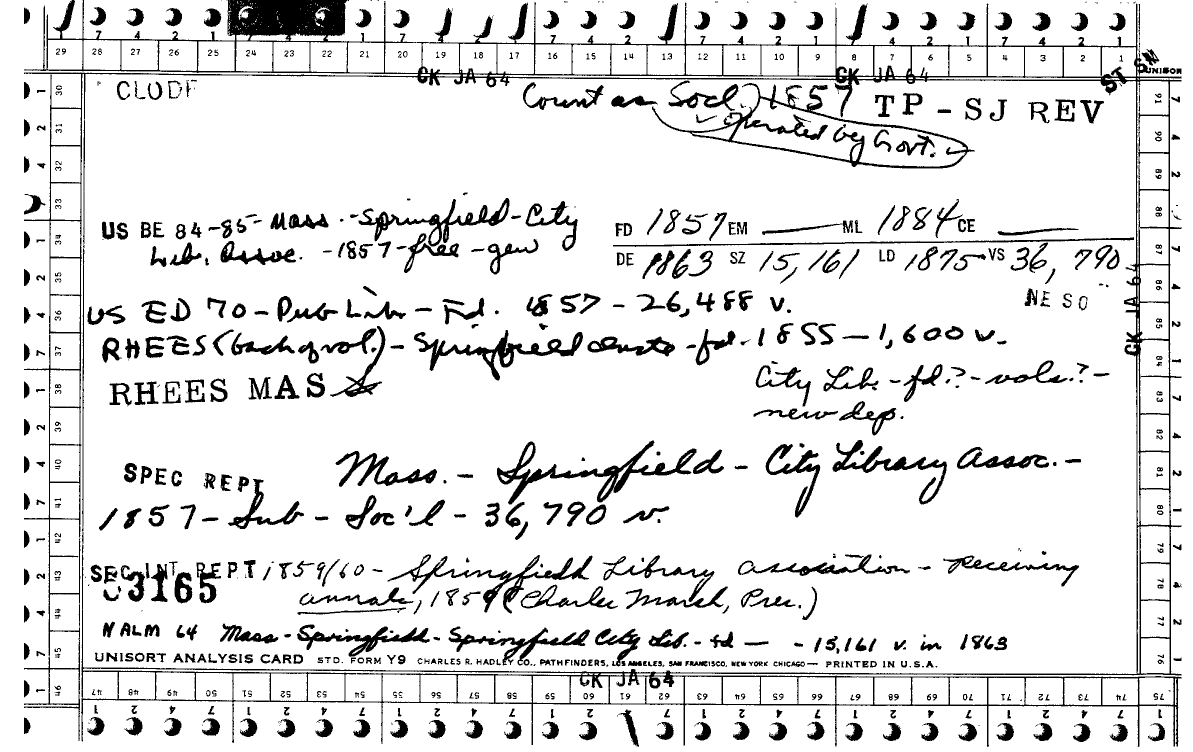 7 4 2 1 7 4 2 1 7 4 2 1 7 4 2 1 7 4 2 1 7 4 2 1
29 28 27 26 25 24 23 22 21 20 19 18 17 16 15 14 13 12 11 10 9 8 7 6 5 4 3 2 1
CK JA 64 CK JA 64 ST SN
UNISORT
CLODE Count as Socl. 1857 TP - SJ REV
operated by Govt.
US BE 84-85 - Mass. - Springfield - City
Lib. Assoc. - 1857 - free - gen
FD 1857 EM — ML 1884 CE —
DE 1863 SZ 15,161 LD 1875 VS 36,790
NE SO
US ED 70 - Pub Lib - Fd. 1857 - 26,488 v.
RHEES (back of vol.) - Springfield Insts - fd. 1855 - 1,600 v.
RHEES MASS
City Lib. - fd.? - vols.? -
new dep.
CK JA 64
SPEC REPT Mass. - Springfield - City Library Assoc. -
1857 - Sub - Soc'l - 36,790 v.
SEC INT REPT 1859/60 - Springfield Library Association - Receiving
annals, 1859 (Charles Marsh, Pres.)
03165
N ALM 64 Mass - Springfield - Springfield City Lib. - fd — - 15,161 v. in 1863
UNISORT ANALYSIS CARD STD. FORM Y9 CHARLES R. HADLEY CO., PATHFINDERS, LOS ANGELES, SAN FRANCISCO, NEW YORK CHICAGO — PRINTED IN U.S.A.
CK JA 64
30 31 32 33 34 35 36 37 38 39 40 41 42 43 44 45 46
47 48 49 50 51 52 53 54 55 56 57 58 59 60 61 62 63 64 65 66 67 68 69 70 71 72 73 74 75
91 90 89 88 87 86 85 84 83 82 81 80 79 78 77 76